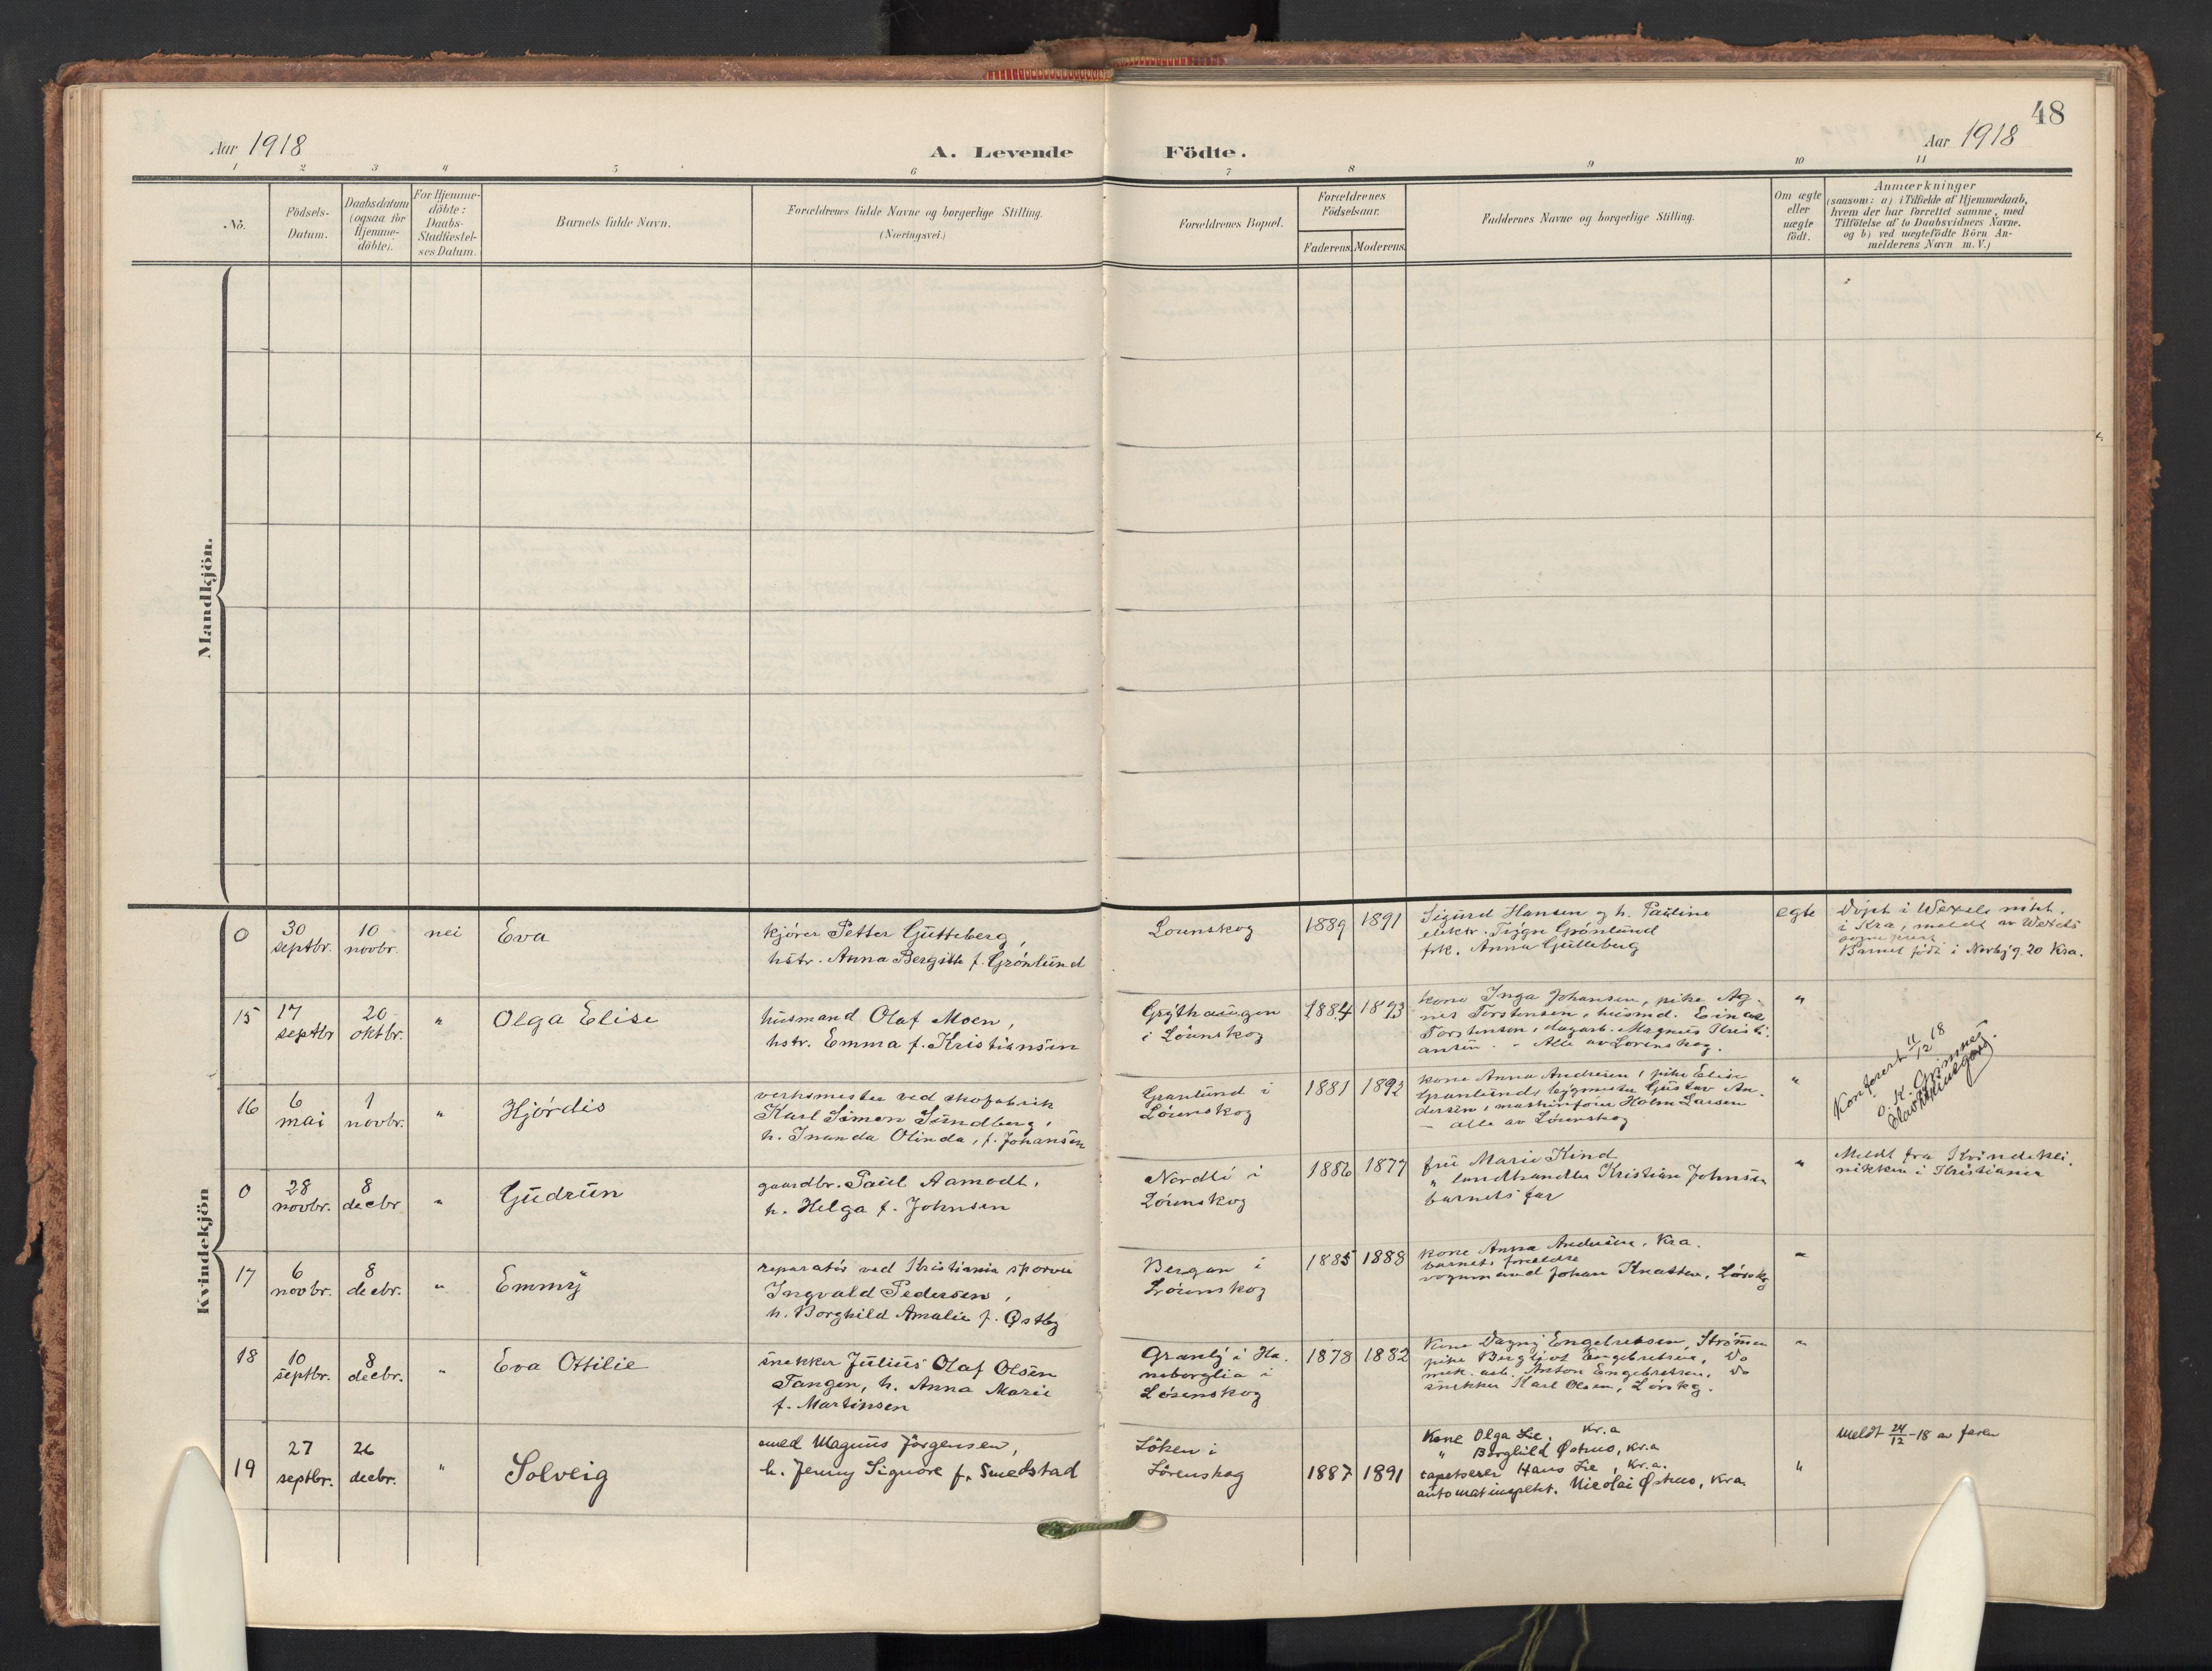 48
Aar 1918
A. Levende
Födte.
Aar 1918
1 2 3 4 5 6 7 8 9 10 11
No.
Födsels-
Datum.
Daabsdatum
(ogsaa for
Hjemme-
döbte).
For Hjemme-
döbte:
Daabs-
Stadfæstel-
ses Datum.
Barnets fulde Navn.
Forældrenes fulde Navne og borgerlige Stilling.
(Næringsvei.)
Forældrenes Bopæl.
Forældrenes
Födselsaar.
Faderens. Moderens.
Faddernes Navne og borgerlige Stilling.
Om ægte
eller
uægte
födt.
Anmærkninger
(saasom: a) i Tilfælde af Hjemmedaab,
hvem der har forrettet samme, med
Tilföielse af to Daabsvidners Navne.
og b) ved uægtefödte Börn An-
melderens Navn m.V.)
Mandkjön.
Kvindekjön
0
30
septbr.
10
novbr.
nei
Eva
kjører Petter Gutteberg,
hstr. Anna Bergitte f. Grönlund
Lørenskog
1889 1891
Sigurd Hansen og h. Pauline
elektr. Grönlund
frk. Anna Gutteberg
egte
Døpt i Wexels
i Kra, meldt av Wexels
Barnet født i Norbyg. 20 Kra.
15
17
septbr
20
oktbr.
"
Olga Elise
husmand Olaf Moen,
hstr. Emma f. Kristiansen
i Lörenskog
1884 1893
kone Inga Johansen, pike Ag-
nes Torstensen, husmd. Einar
Torstensen, dagarb. Magnus Kristi-
ansen. - Alle av Lørenskog.
"
16
6
mai
1
novbr.
"
Hjördis
verksmester ved skofabrik
Karl Simon Sundberg,
h. Inanda Olinda, f. Johansen
Granlund i
Lörenskog
1881 1892
kone Anna Andresen, pike Elise
Granlund, bygmester Gustav An-
dersen, Holm Larsen
- alle av Lörenskog
"
Konferert 11/12 18
O. K. Grimnes
0
28
novbr.
8
decbr
"
Gudrun
gaardbr. Paul Aamodt,
h. Helga f. Johnsen
Nordli i
Lörenskog
1886 1877
fru Marie Kind
" landhandler Kristian Johnsen
barnets far
"
Meldt fra Kvindekli-
nikken i Kristiania
17
6
novbr.
8
decbr.
"
Emmy
reparatör ved Kristiania sporvei
Ingvald Pedersen,
h. Borghild Amalie f. Østby
Bergan i
Lörenskog
1885 1888
kone Anna Andersen, Kra.
barnets forældre
vognmand Johan Knatten, Lörskg
"
18
10
septbr.
8
decbr.
"
Eva Ottilie
snekker Julius Olaf Olsen
Tangen, h. Anna Marie
f. Martinsen
Granly i Ha-
neborglia i
Lörenskog
1878 1882
Kone Dagny Engebretsen, Strømmen
pike Bergljot Engebretsen, Do
mek. arb. Anton Engebretsen, Do
snekker Karl Olsen, Lørskg.
"
19
27
septbr.
26
decbr.
"
Solveig
smed Magnus Jörgensen,
h. Jenny Signore f. Smedstad
Löken i
Lörenskog
1887 1891
Kone Olga Lie, Kr.a
" Borghild Østmo, Kr.a
tapetserer Hans Lie, Kr.a.
automatinspekt. Nicolai Østmo, Kra.
"
Meldt 24/12-18 av faren